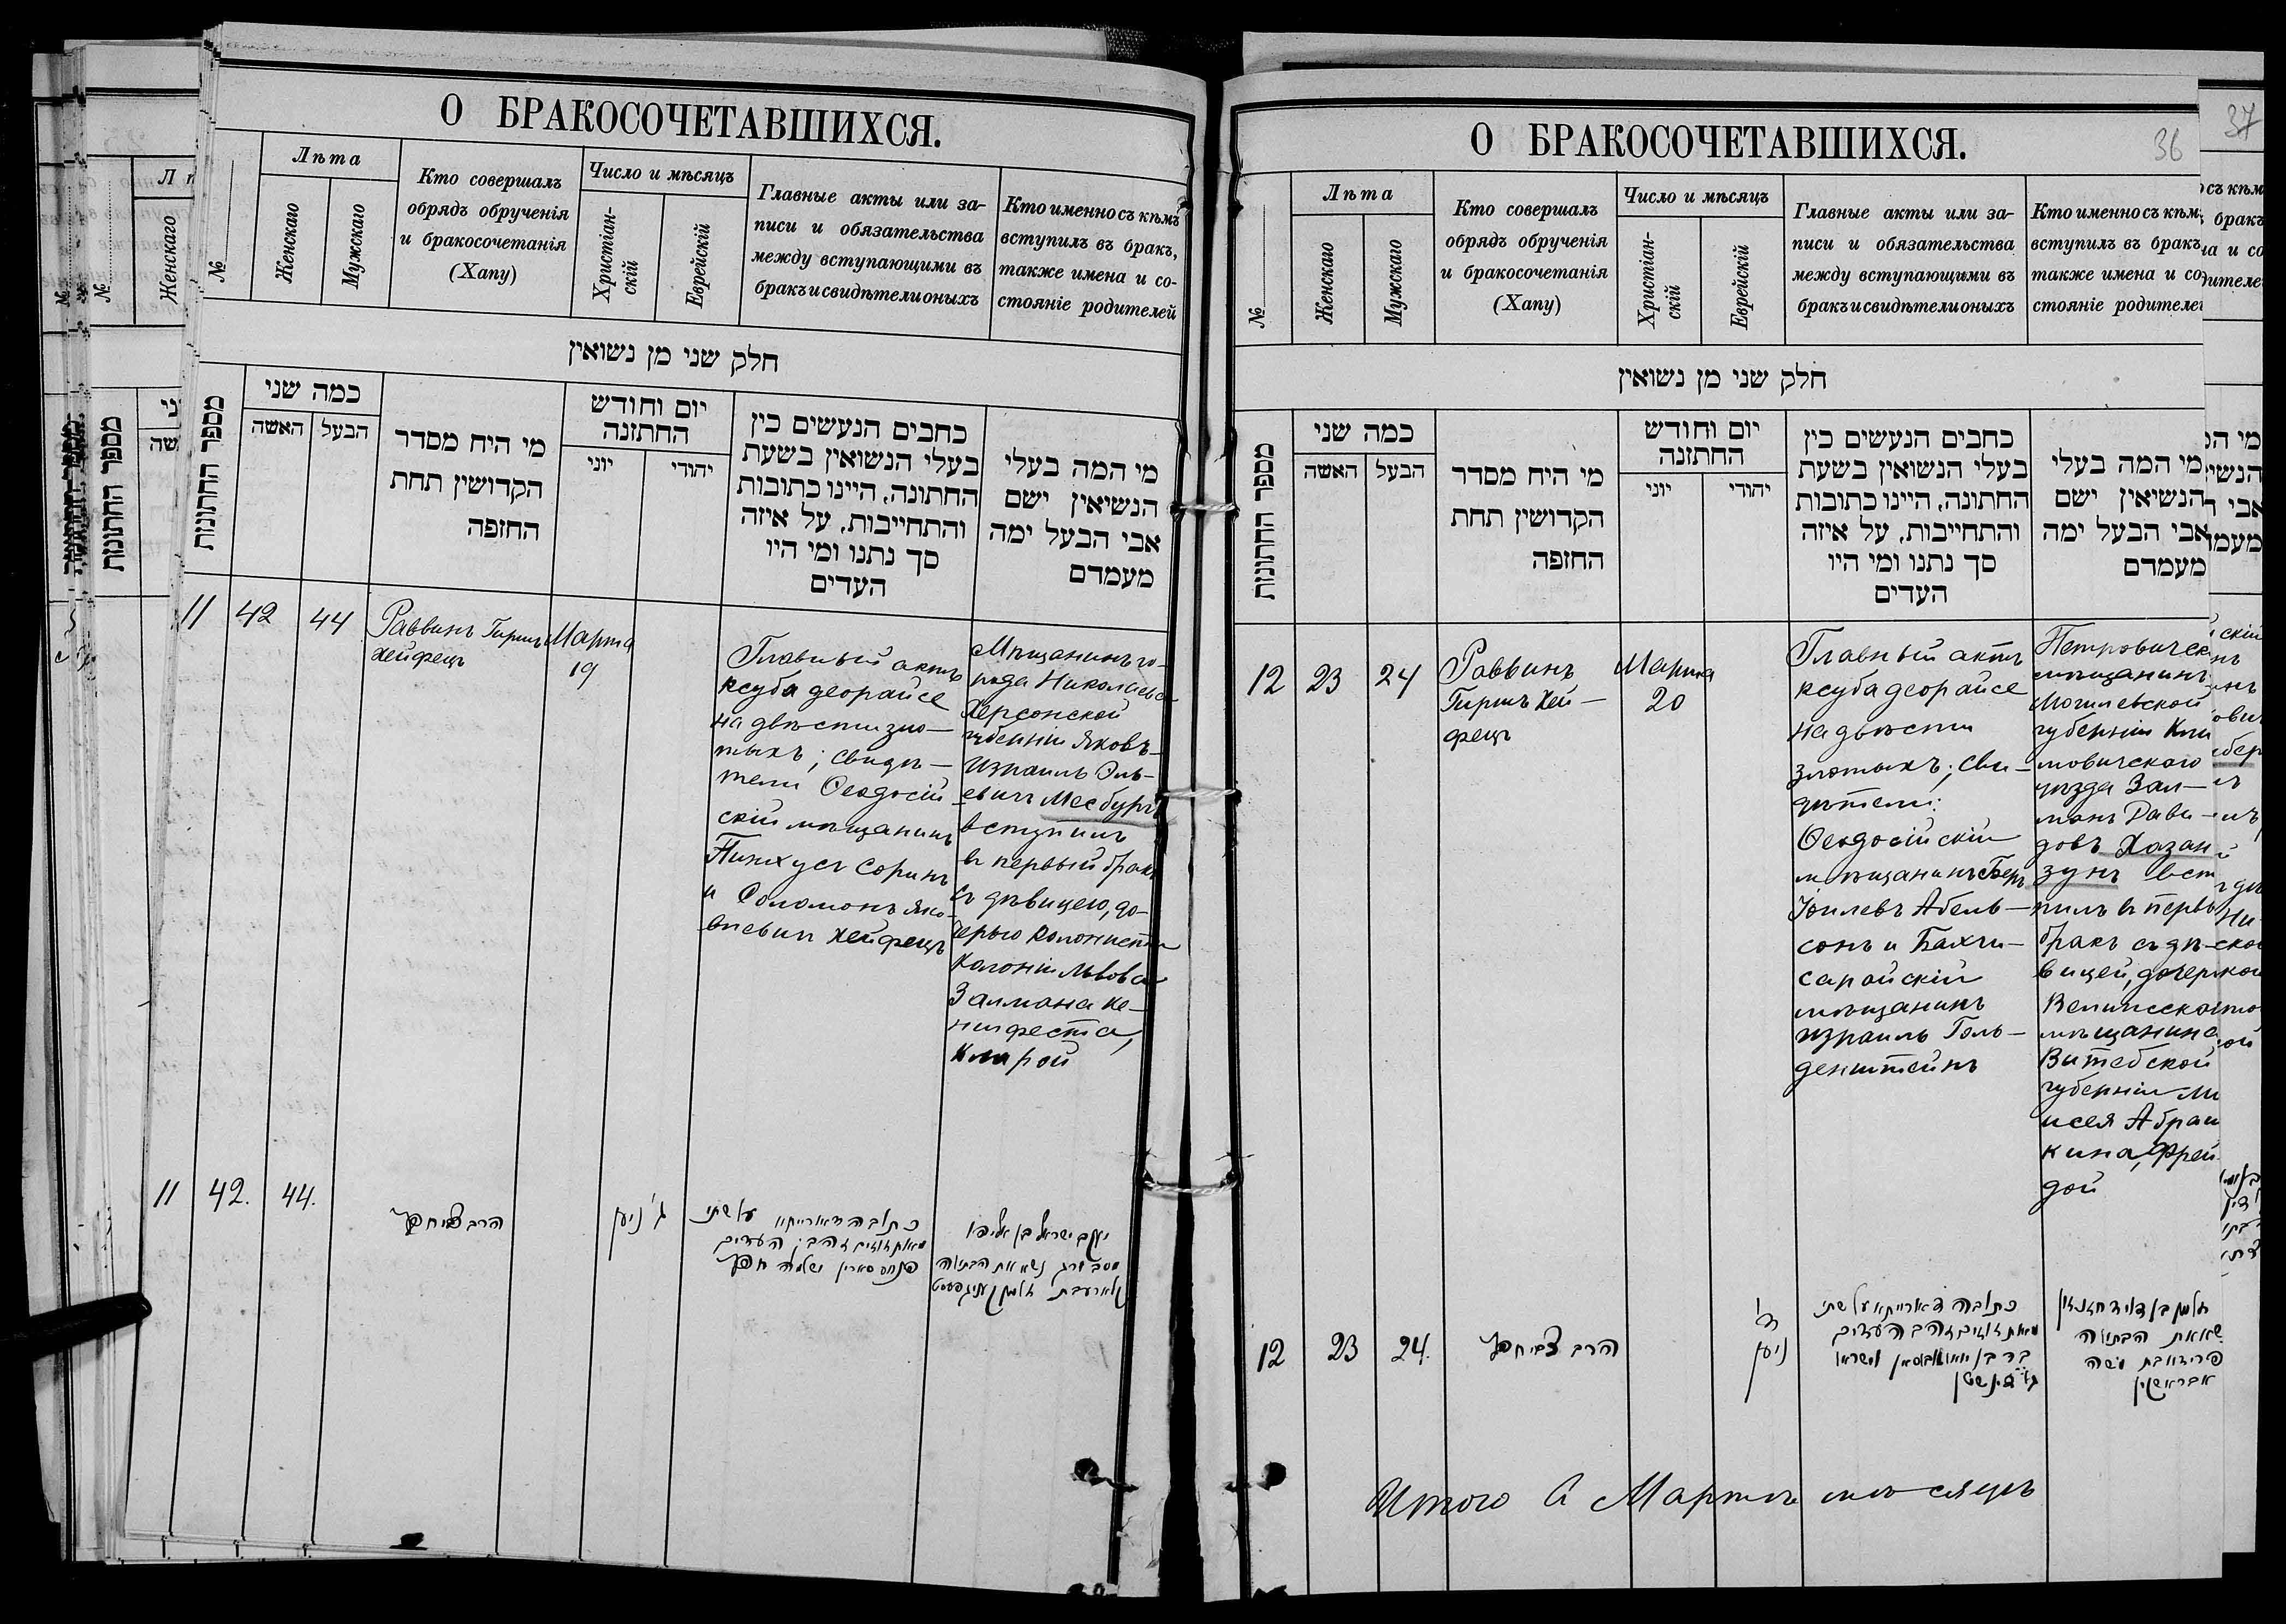 О БРАКОСОЧЕТАВШИХСЯ.
№
Лѣта
Женскаго
Мужскаго
Кто совершалъ
обрядъ обрученія
и бракосочетанія
(Хапу)
Число и мѣсяцъ
Христіан-
скій
Еврейскій
Главные акты или за-
писи и обязательства
между вступающими въ
бракъ и свидѣтели оныхъ
Кто именно съ кѣмъ
вступилъ въ бракъ,
также имена и со-
стояніе родителей
חלק שני מן נשואין
מספר החתונות
כמה שני
האשה
הבעל
מי היח מסדר
הקדושין תחת
החופה
יום וחודש
החתונה
יוני
יהודי
כתבים הנעשים בין
בעלי הנשואין בשעת
החתונה, היינו כתובות
והתחייבות, על איזה
סך נתנו ומי היו
העדים
מי המה בעלי
הנשיאין ישם
אבי הבעל ימה
מעמדם
11 42 44
Раввинъ Гиршъ
Хейфецъ
Марта
19
Главный актъ
ксуба деорайсе
на двѣсти зло-
тыхъ; свидѣ-
тели Ѳеодосій-
скій мѣщанинъ
Пинхусъ Соринъ
и Соломонъ Яко-
влевич Хейфецъ
Мѣщанинъ го-
рода Николаева
Херсонской
губерніи Яковъ-
Израиль Эль-
евичъ Месбургъ
вступилъ
въ первый бракъ
съ дѣвицею, до-
черью колониста
Колоніи Львова
Залмана Ке-
нигфеста,
Кларой
11 42. 44.
הרב צבי חפץ
ג' ניסן
כתובה דאורייתא על שתי
מאות זוזים זהב; העדים
פנחס סארין ושלמה חפץ
יעקב ישראל בן אליהו
מסבורג נשא את הבתולה
קלארע בת זלמן קעניגפעסט
О БРАКОСОЧЕТАВШИХСЯ.
36
37
№
Лѣта
Женскаго
Мужскаго
Кто совершалъ
обрядъ обрученія
и бракосочетанія
(Хапу)
Число и мѣсяцъ
Христіан-
скій
Еврейскій
Главные акты или за-
писи и обязательства
между вступающими въ
бракъ и свидѣтели оныхъ
Кто именно съ кѣмъ
вступилъ въ бракъ,
также имена и со-
стояніе родителей
חלק שני מן נשואין
מספר החתונות
כמה שני
האשה
הבעל
מי היח מסדר
הקדושין תחת
החופה
יום וחודש
החתונה
יוני
יהודי
כתבים הנעשים בין
בעלי הנשואין בשעת
החתונה, היינו כתובות
והתחייבות, על איזה
סך נתנו ומי היו
העדים
מי המה בעלי
הנשיאין ישם
אבי הבעל ימה
מעמדם
12 23 24
Раввинъ
Гиршъ Хей-
фецъ
Марта
20
Главный актъ
ксуба деорайсе
на двѣсти
злотыхъ; сви-
дѣтели:
Ѳеодосійскій
мѣщанинъ Беръ
Іоилевъ Абель-
сонъ и Бахчи-
сарайскій
мѣщанинъ
ИзраильГоль-
денштейнъ
Петровическ
мѣщанинъ
Могилевской
губерніи Кли
мовичскаго
уѣзда Зал-
манъ Дави-
довъ Хазан
зунъ всту
пилъ въ первы
бракъ съ дѣ-
вицей, дочерь
Велижска
мѣщанина
Витебской
губерніи Мо
исея Абраш
кина, Фрей-
дой
12 23 24.
הרב צבי חפץ
ד'
ניסן
כתובה דאורייתא על שתי
מאות זוזים זהב העדים
בר בן יואל אבלסאן וישראל
זלמן בן דוד חזנזון
נשא את הבתולה
פריידא בת משה
אבראשקין
Итого въ Мартѣ мѣсяцѣ